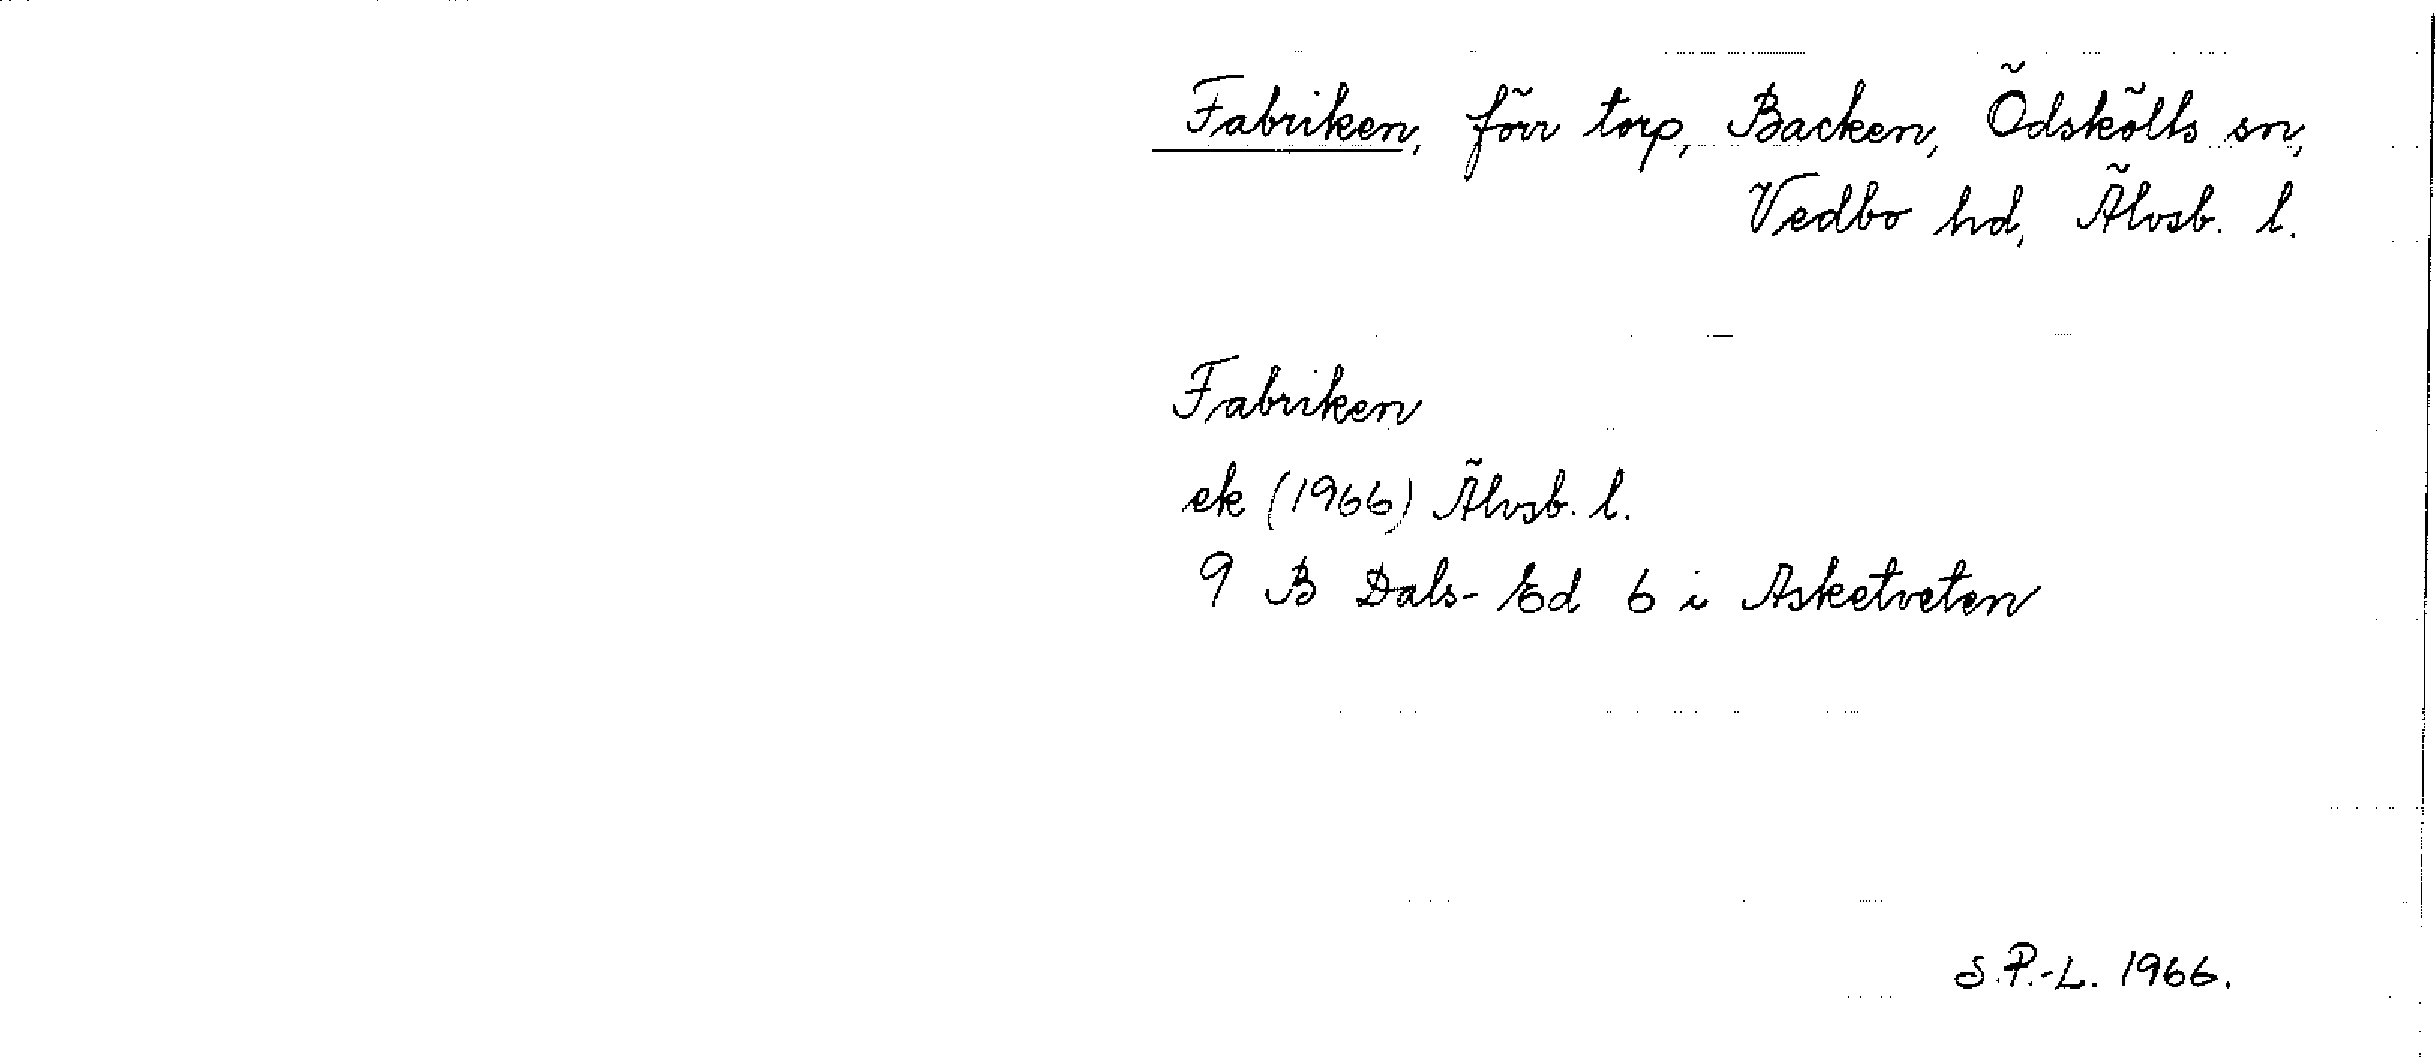 Fabriken, förr torp, Backen, Ödskölts sn,
Vedbo hd, Älvsb. l.
Fabriken
ek (1966) Älvsb. l.
9 B Dals-Ed 6 i Asketveten
S.P.-L. 1966.